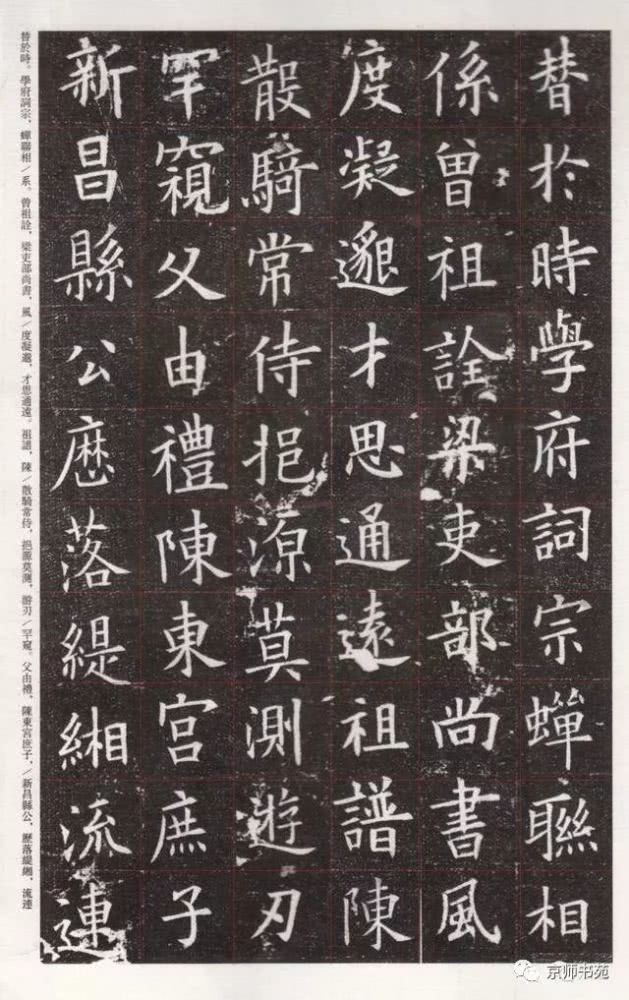 替於時學府詞宗蟬聯相
係曾祖詮梁吏部尚書風
度凝邈才思通遠祖譜陳
散騎常侍挹源莫測遊刃
罕窺父由禮陳東宮庶子
新昌縣公歷落緹緗流連
替於時。學府詞宗、蟬聯相/系。曾祖詮、梁吏部尚書、風/度凝邈、才思通遠。祖譜、陳/散騎常侍、挹源莫測、游刃/罕窺。父由禮、陳東宮庶子、/新昌縣公、歷落緹緗、流連
京师书苑